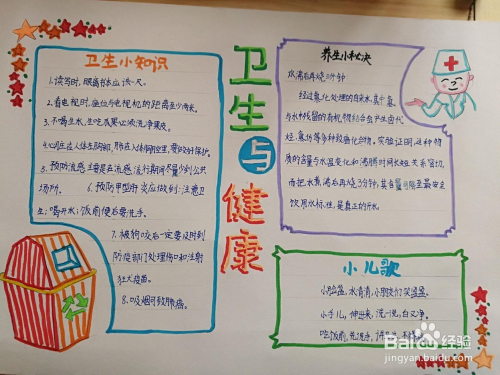 卫生小知识
1.读写时,眼离书本应该一尺。
2.看电视时,座位与电视机的距离至少两米。
3.不喝生水,生吃瓜果必须洗净果皮。
4.心测生在人体左胸部,肺在人体胸腔里,要做好保护。
5.预防流感主要是在流感流行期间尽量少到公共
场所。 6.预防甲型肝炎应做到:注意卫
生;喝开水;饭前便后要洗手。
7.被狗咬后一定要及时到
防疫部门处理伤口和注射
狂犬疫苗。
8.吸烟可致肺癌。
卫生与健康
养生小秘诀
水沸后再烧3分钟
经过氯化处理的自来水,其中氯
与水中残留的有机物结合会产生卤代
烃、氯仿等多种致癌化合物。实验证明,这种物
质的含量与水温变化和沸腾时间长短关系密切,
而把水煮沸后再烧3分钟,其含量可降至最安全
饮用水标准,是真正的开水。
小儿歌
小脸盆,水清清,小朋友们笑盈盈,
小手儿,伸出来,洗一洗,白又净,
吃饭前,先洗手,讲卫生,
Baidu经验
jingyan.baidu.com